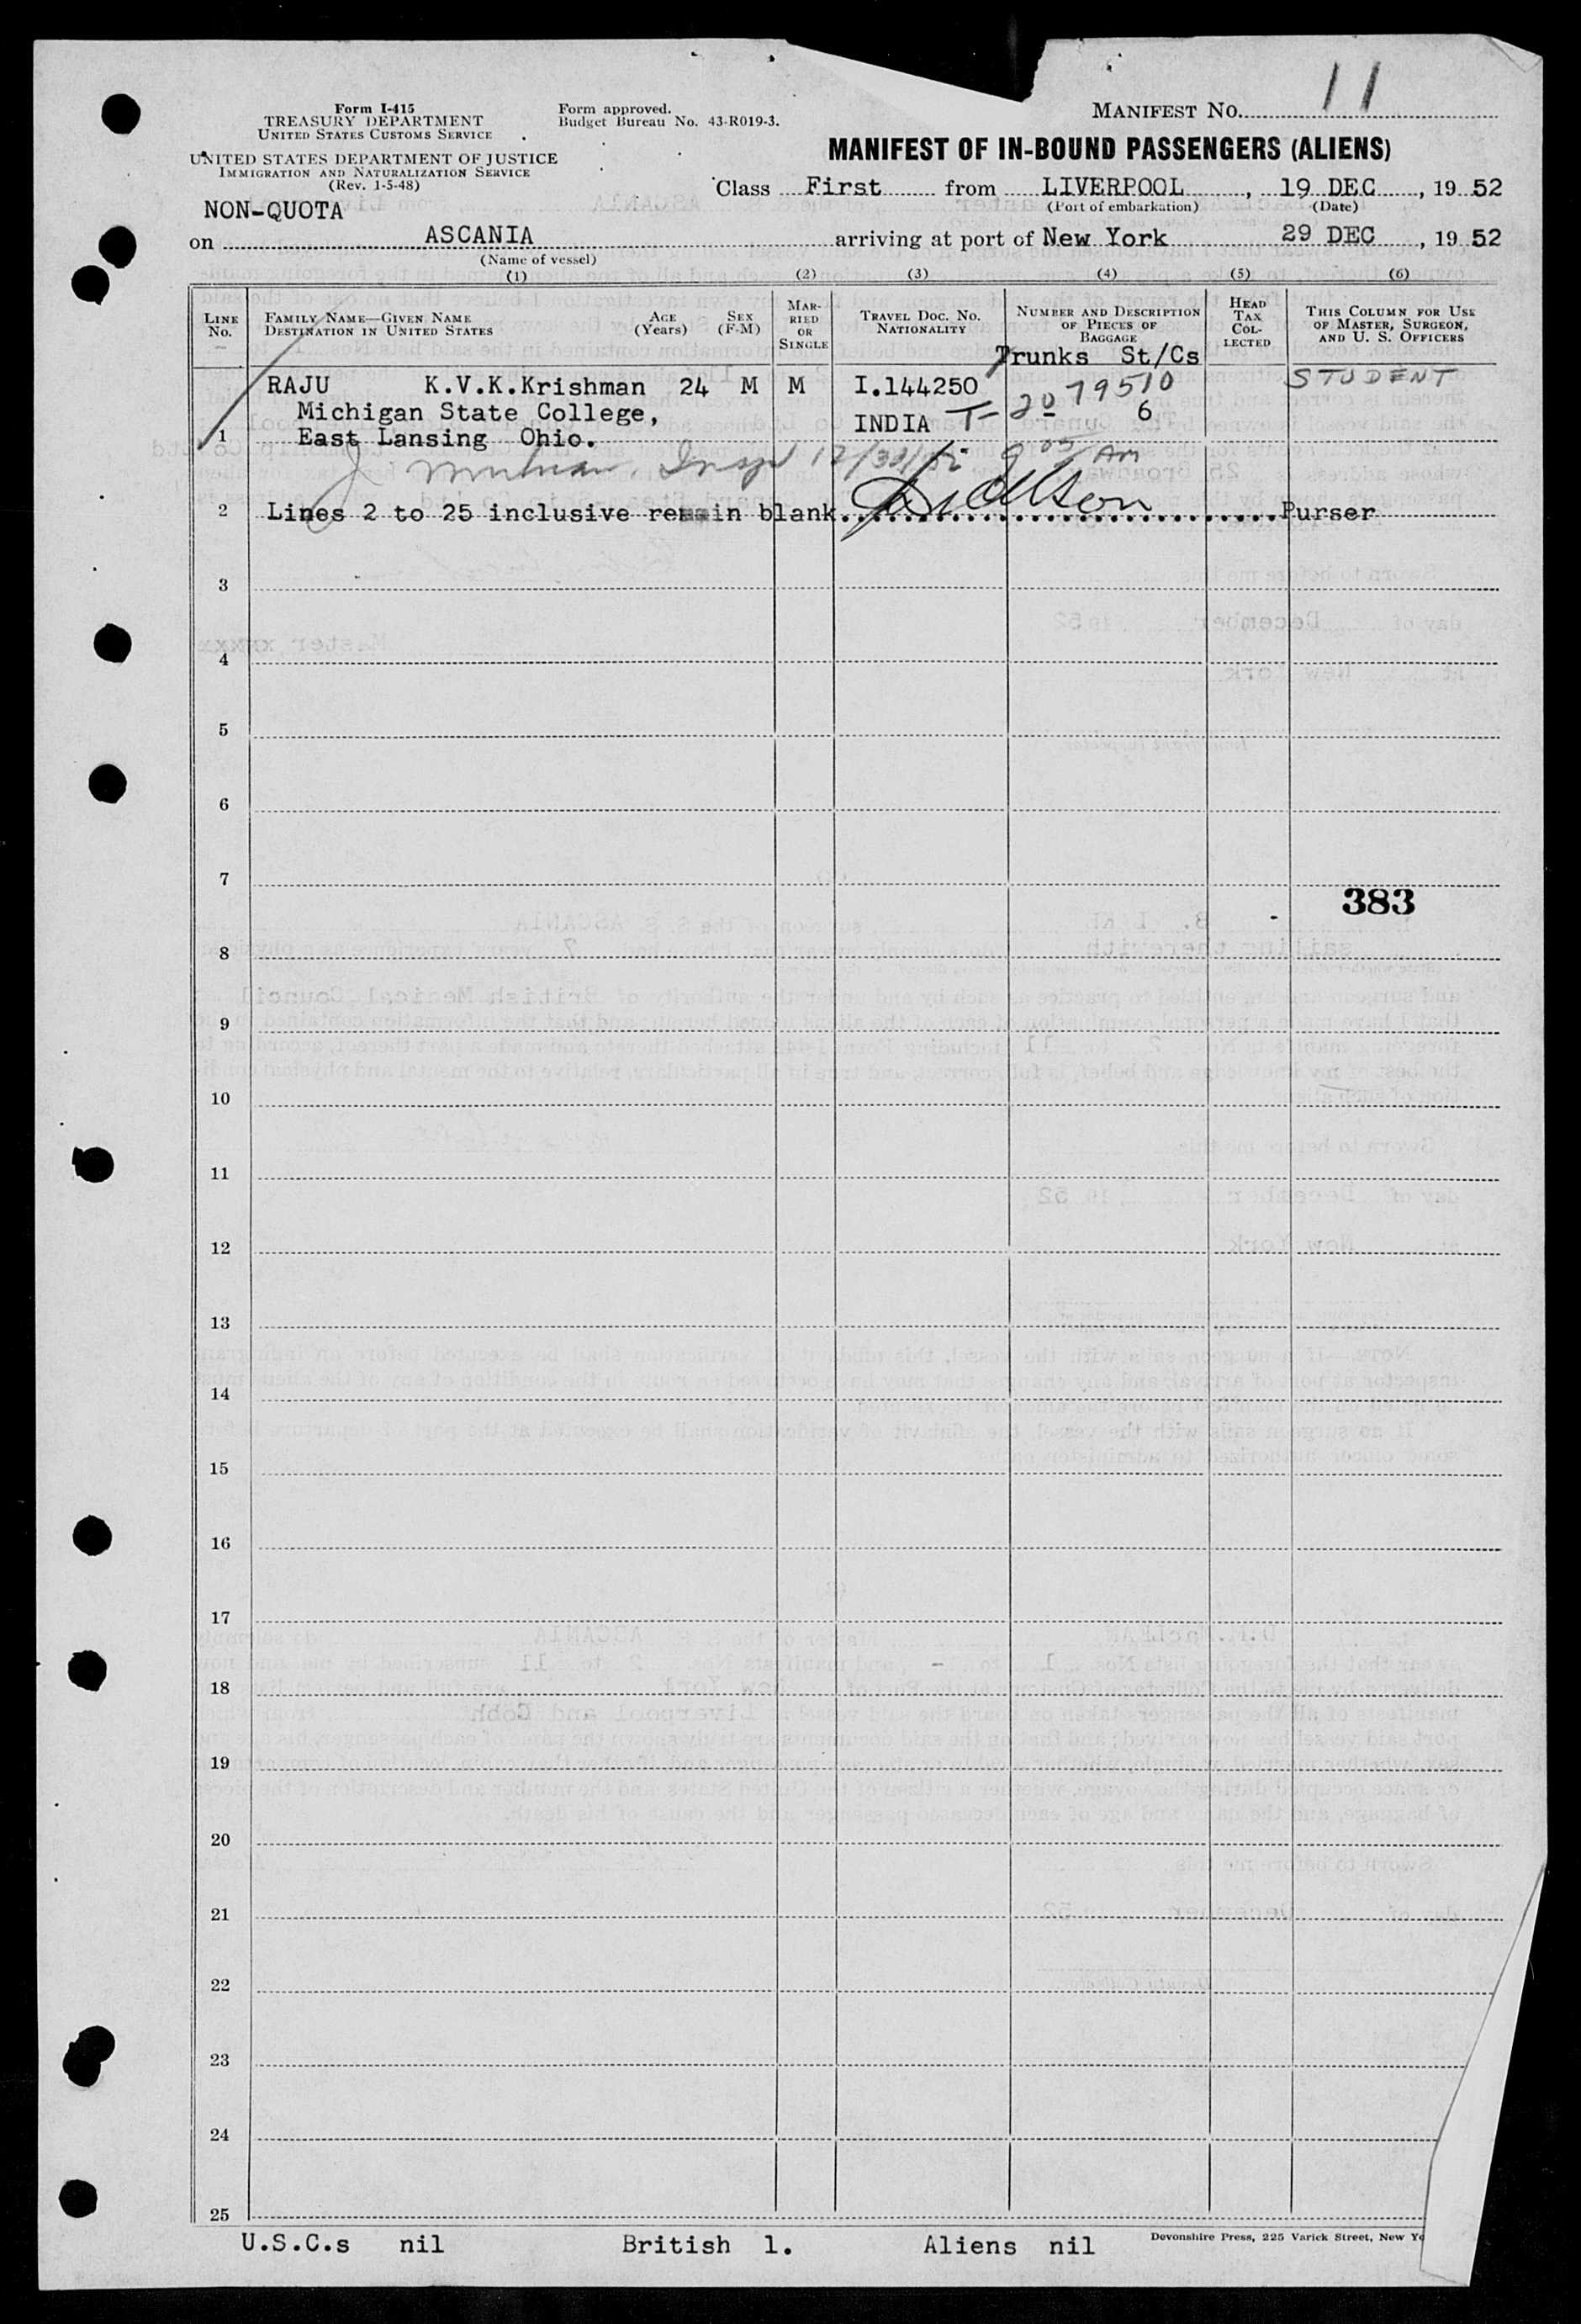 11
Form I-415
TREASURY DEPARTMENT
UNITED STATES CUSTOMS SERVICE
Form approved.
Budget Bureau No. 43-R019-3.
MANIFEST No.
UNITED STATES DEPARTMENT OF JUSTICE
IMMIGRATION AND NATURALIZATION SERVICE
(Rev. 1-5-48)
MANIFEST OF IN-BOUND PASSENGERS (ALIENS)
Class First from LIVERPOOL, 19 DEC, 19 52
(Port of embarkation) (Date)
NON-QUOTA
on ASCANIA arriving at port of New York 29 DEC, 19 52
(Name of vessel)
(1) (2) (3) (4) (5) (6)
LINE No. FAMILY NAME—GIVEN NAME DESTINATION IN UNITED STATES AGE (Years) SEX (F-M) MARRIED OR SINGLE TRAVEL DOC. No. NATIONALITY NUMBER AND DESCRIPTION OF PIECES OF BAGGAGE HEAD TAX COLLECTED THIS COLUMN FOR USE OF MASTER, SURGEON, AND U. S. OFFICERS
Trunks St/Cs
RAJU K.V.K.Krishman 24 M M I.144250 20 79510 STUDENT
Michigan State College, INDIA T- 6
1 East Lansing Ohio.
2 Lines 2 to 25 inclusive remain blank..............................Purser
3
4
5
6
7
383
8
9
10
11
12
13
14
15
16
17
18
19
20
21
22
23
24
25
U.S.C.s nil British 1. Aliens nil Devonshire Press, 225 Varick Street, New